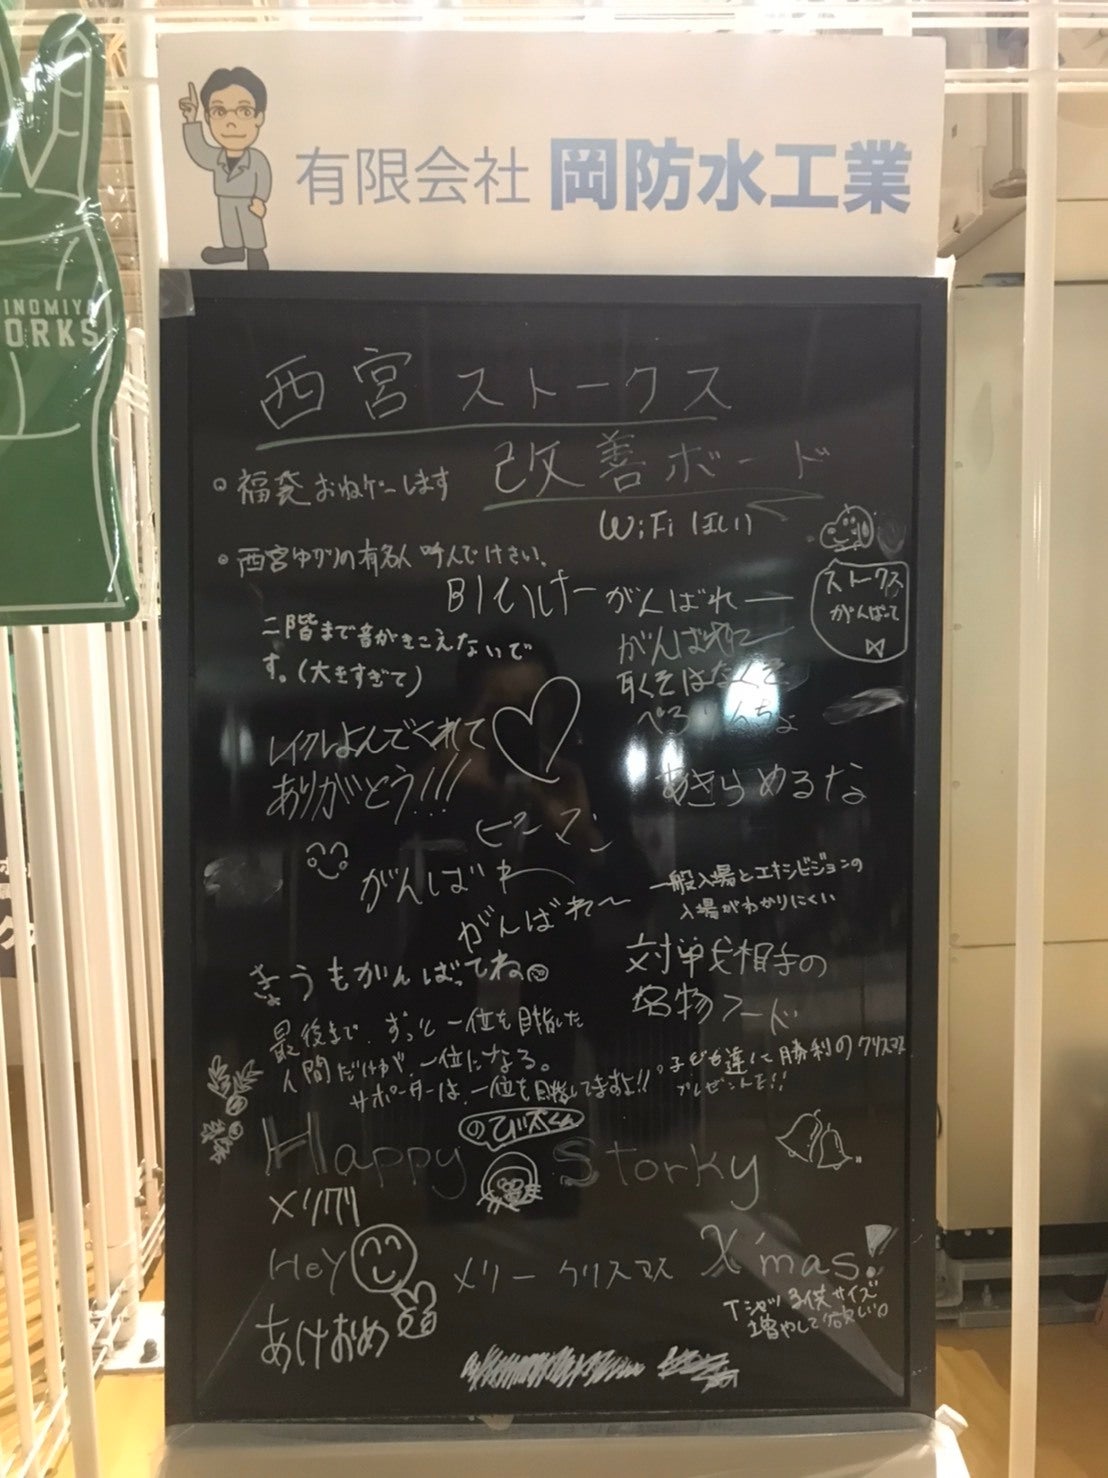 有限会社 岡防水工業
INOMIYA
ORKS
西宮ストークス
改善ボード
。福袋おねゲーします
WiFiほしい
。西宮ゆかりの有名人呼んで下さい。
がんばれー
ストークス
がんばって
二階まで音がきこえないで
す。(大きすぎて)
がんばれ
耳くそはなくそ
レイクルよんでくれて
ありがとう!!!
あきらめるな
ピーマン
がんばれー
一般入場とエキシビジョンの
入場がわかりにくい
がんばれ〜
きょうもがんばってね
対戦相手の
名物フード
最後まで、ずっと一位を目指した
人間だけが、一位になる。
サポーターは、一位を目指してますよ!!
子ども達に勝利のクリスマス
プレゼントを!!
のび太くん
Happy Storky
メリクリ
X'mas!
HEY
メリークリスマス
Tシャツ子供サイズ
増やして欲しい。
あけおめ